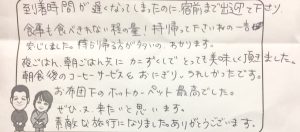 到着時間が遅くなってしまったのに、宿前まで出迎て下さり
食事も食べきれない程の量!持帰って下さいねの一言
安心しました。持ち帰る方が多いの、わかります。
夜ごはん、朝ごはん共にカニずくしでとっても美味しく頂きました。
朝食後のコーヒーサービス&おにぎり、うれしかったです。
お布団下のホットカーペット最高でした。
ぜひ、又、来たいと思います。
素敵な旅行になりました。ありがとうございます。